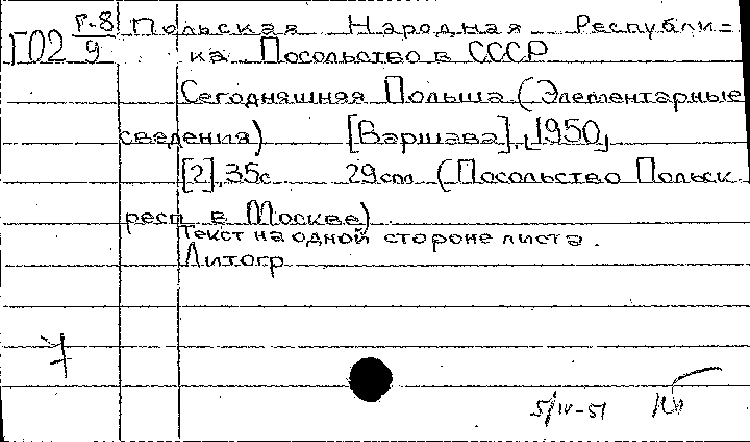 Г02 Р-8/9 Польская Народная Республи=
ка Посольство в СССР
Сегодняшняя Польша (Элементарные
сведения) [Варшава], 1950
[2], 35с 29см (Посольство Польск
респ в Москве)
Текст на одной стороне листа.
Литогр
5/IV-51